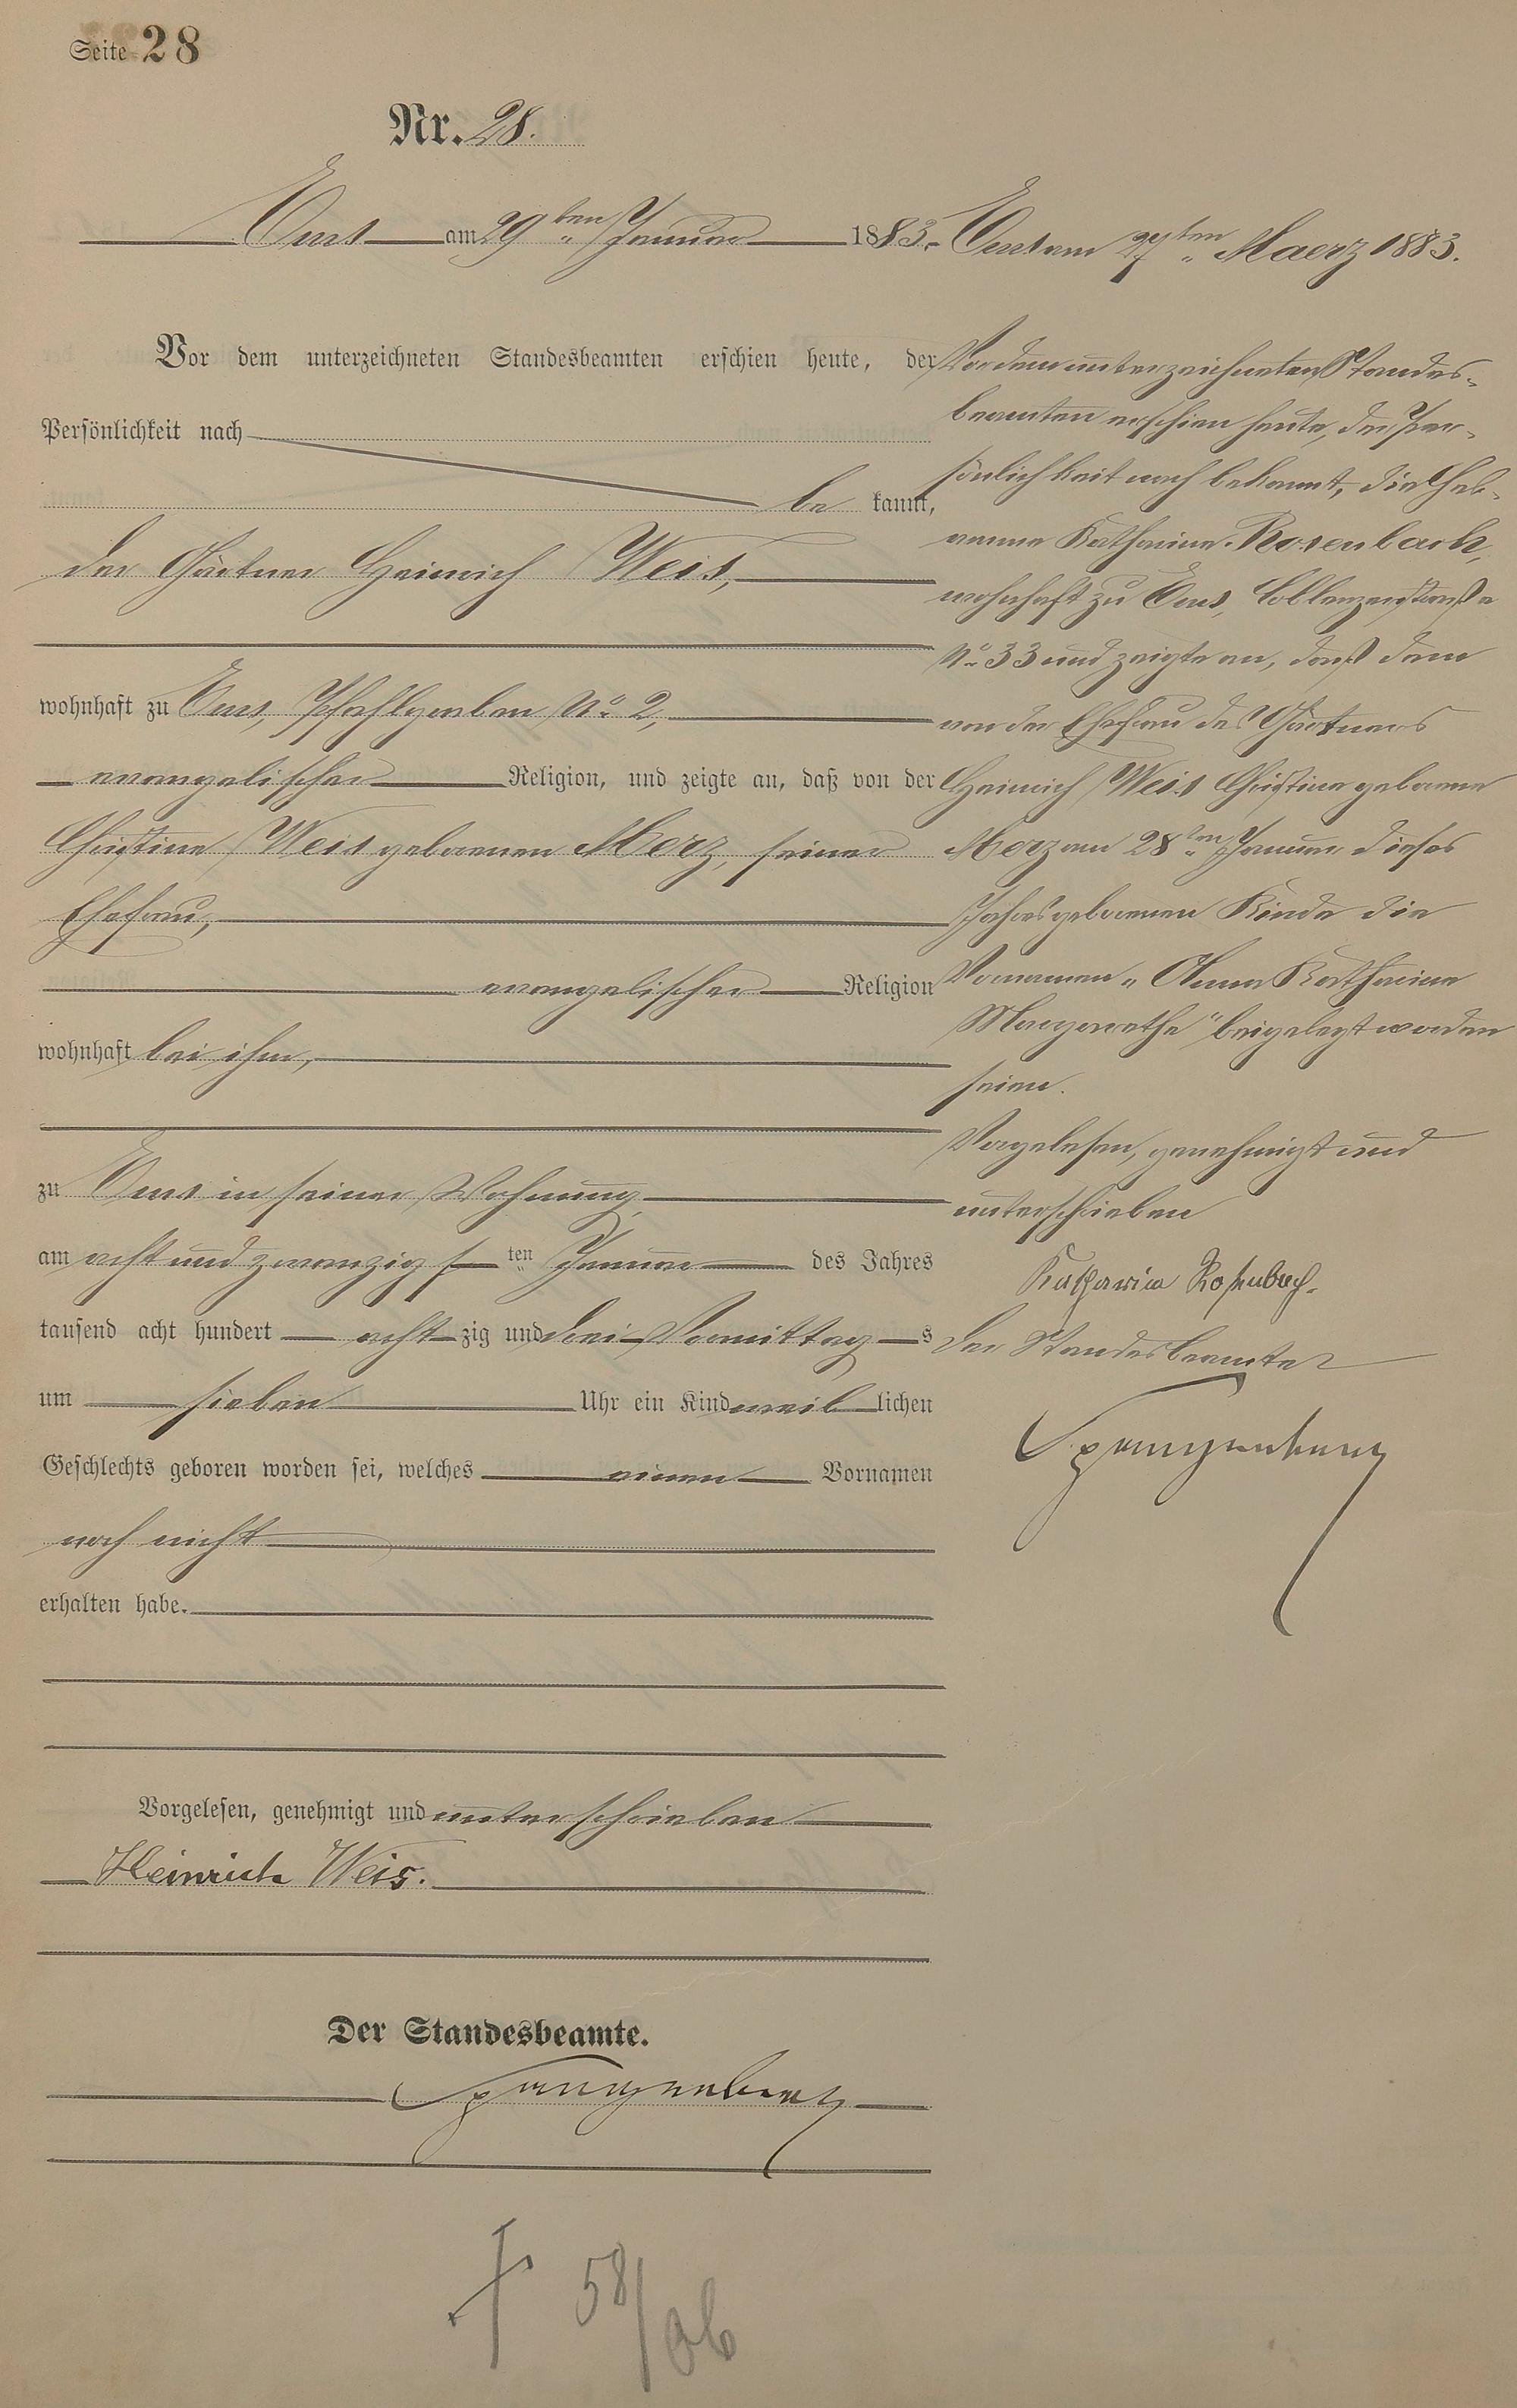 Seite 28
Nr. 28.
Ems am 29ten Januar 1883.
Vor dem unterzeichneten Standesbeamten erschien heute, der
Persönlichkeit nach
be kannt,
der Gärtner Heinrich Weis,
wohnhaft zu Ems, Pfahlgraben No 2,
evangelischer Religion, und zeigte an, daß von der
Christine Weis geborenen Merz, seiner
Ehefrau,
evangelischer Religion
wohnhaft bei ihm,
zu Ems in seiner Wohnung,
am acht und zwanzigsten Januar des Jahres
tausend acht hundert achtzig und drei Vormittags
um sieben Uhr ein Kind weiblichen
Geschlechts geboren worden sei, welches einen Vornamen
noch nicht
erhalten habe.
Vorgelesen, genehmigt und unterschrieben
Heinrich Weis.
Der Standesbeamte.
Spangenberg
Ems am 27ten Maerz 1883.
Vor dem unterzeichneten Standes-
beamten erschien heute, der Per-
sönlichkeit nach bekannt, die Heb-
amme Katharina Rosenbach,
wohnhaft zu Ems, Coblenzerstraße
No 33 und zeigte an, daß dem
von der Ehefrau des Gärtners
Heinrich Weis Christine geborene
Merz am 28ten Januar dieses
Jahres geborenen Kinde die
Vornamen „Anna Katharina
Margarethe" beigelegt worden
seien.
Vorgelesen, genehmigt und
unterschrieben
Katharina Rosenbach.
Der Standesbeamte
Spangenberg
† 58/06